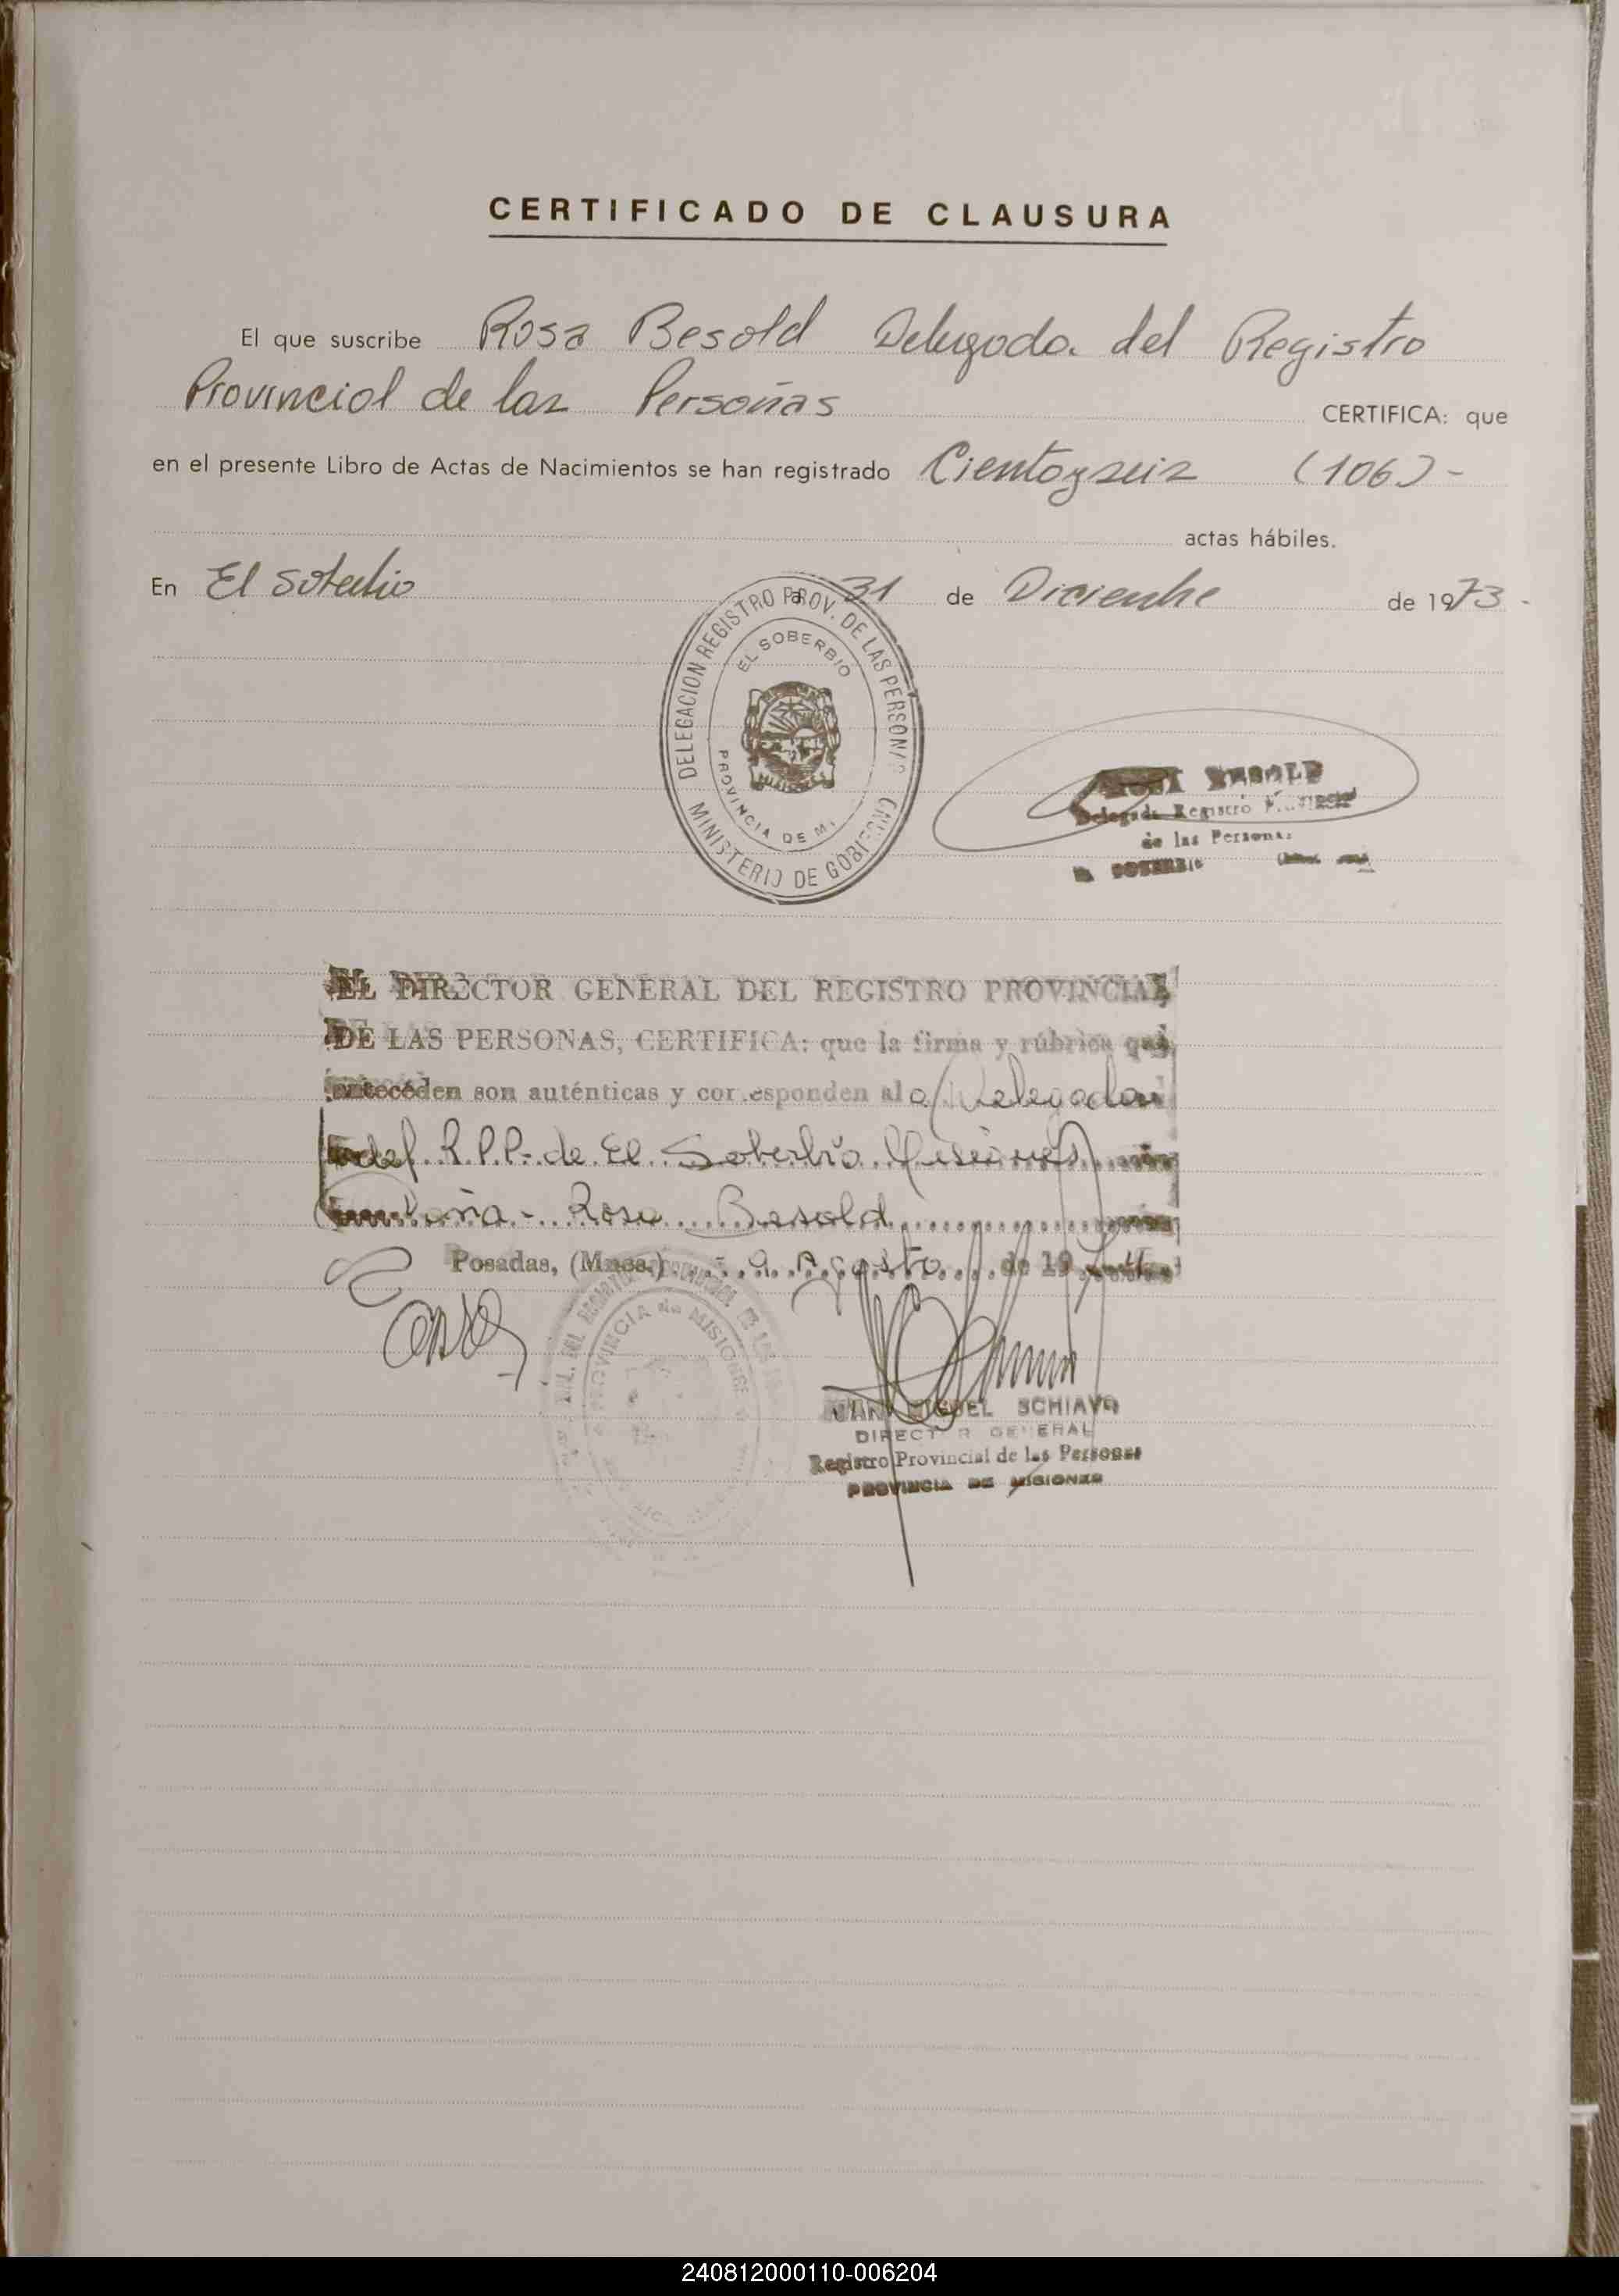 CERTIFICADO DE CLAUSURA
El que suscribe Rosa Besold Delegada del Registro
Provincial de las Personas CERTIFICA: que
en el presente Libro de Actas de Nacimientos se han registrado Ciento y seis (106)-
actas hábiles.
En El Soberbio a 31 de Diciembre de 1973-
DELEGACION REGISTRO PROV. DE LAS PERSONAS
EL SOBERBIO
PROVINCIA DE M.
MINISTERIO DE GOBIERNO
ROSA BESOLD
Delegada Registro Provincial
de las Personas
EL SOBERBIO
EL DIRECTOR GENERAL DEL REGISTRO PROVINCIAL
DE LAS PERSONAS, CERTIFICA: que la firma y rúbrica que
anteceden son auténticas y corresponden al a Delegada
del R.P.P. de El Soberbio (Misiones)
Rosa Besold
Posadas, (Mnes.) 9 Agosto de 1974
PROVINCIA de MISIONES
JUAN MIGUEL SCHIAVO
DIRECTOR GENERAL
Registro Provincial de las Personas
PROVINCIA DE MISIONES
240812000110-006204